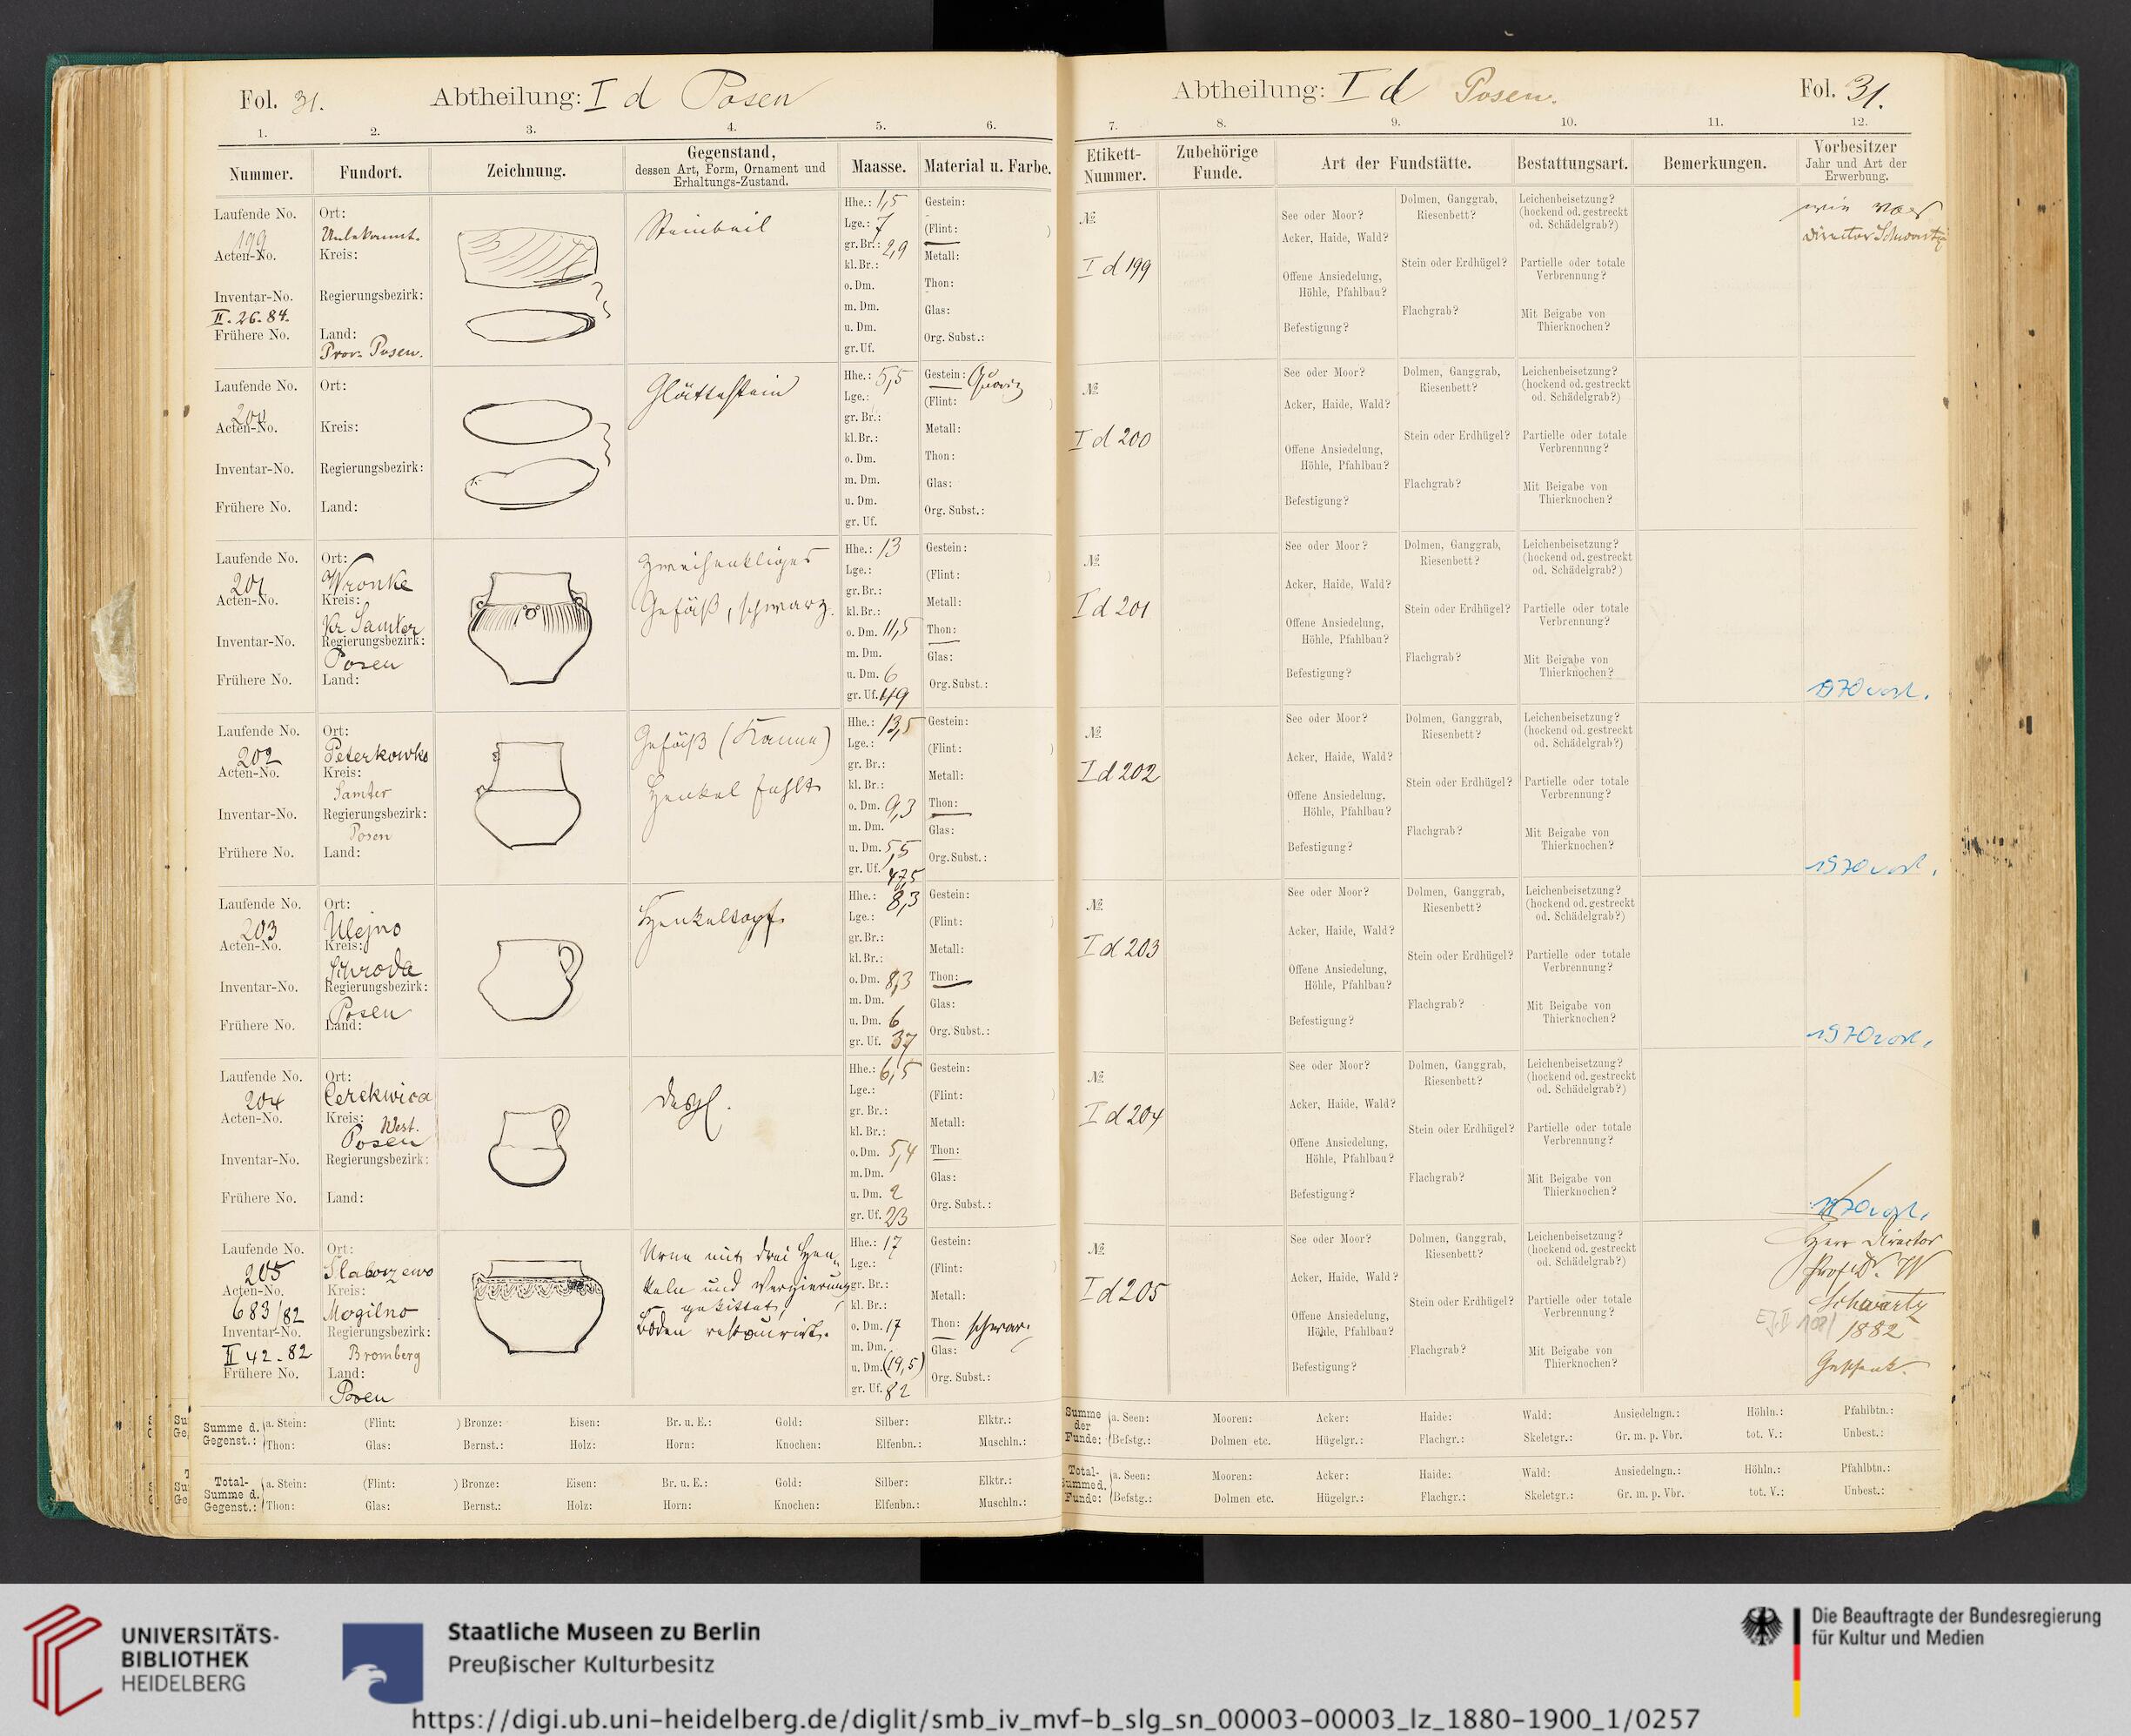 Fol. 31.
Abtheilung: I d Posen
1. 2. 3. 4. 5. 6.
Nummer.
Fundort.
Zeichnung.
Gegenstand,
dessen Art, Form, Ornament und
Erhaltungs-Zustand.
Maasse.
Material u. Farbe.
Laufende No.
199
Acten-No.
Inventar-No.
II. 26. 84.
Frühere No.
Ort:
Unbekannt.
Kreis:
Regierungsbezirk:
Land:
Prov. Posen.
Steinbeil
Hhe.: 1,5
Lge.: 7
gr. Br.: 2,9
kl. Br.:
o. Dm.
m. Dm.
u. Dm.
gr. Uf.
Gestein:
(Flint: )
Metall:
Thon:
Glas:
Org. Subst.:
Laufende No.
200
Acten-No.
Inventar-No.
Frühere No.
Ort:
Kreis:
Regierungsbezirk:
Land:
Glättestein
Hhe.: 5,5
Lge.:
gr. Br.:
kl. Br.:
o. Dm.
m. Dm.
u. Dm.
gr. Uf.
Gestein: Quarz
(Flint: )
Metall:
Thon:
Glas:
Org. Subst.:
Laufende No.
201
Acten-No.
Inventar-No.
Frühere No.
Ort:
Wronke
Kreis:
Kr Samter
Regierungsbezirk:
Posen
Land:
Zweihenkliges
Gefäß, schwarz.
Hhe.: 13
Lge.:
gr. Br.:
kl. Br.:
o. Dm. 11,5
m. Dm.
u. Dm. 6
gr. Uf. 49
Gestein:
(Flint: )
Metall:
Thon:
Glas:
Org. Subst.:
Laufende No.
202
Acten-No.
Inventar-No.
Frühere No.
Ort:
Peterkowko
Kreis:
Samter
Regierungsbezirk:
Posen
Land:
Gefäß (Kanne)
Henkel fehlt
Hhe.: 13,5
Lge.:
gr. Br.:
kl. Br.:
o. Dm. 9,3
m. Dm.
u. Dm. 5,5
gr. Uf. 47,5
Gestein:
(Flint: )
Metall:
Thon:
Glas:
Org. Subst.:
Laufende No.
203
Acten-No.
Inventar-No.
Frühere No.
Ort:
Ulejno
Kreis:
Schroda
Regierungsbezirk:
Posen
Land:
Henkeltopf
Hhe.: 8,3
Lge.:
gr. Br.:
kl. Br.:
o. Dm. 8,3
m. Dm.
u. Dm. 6
gr. Uf. 37
Gestein:
(Flint: )
Metall:
Thon:
Glas:
Org. Subst.:
Laufende No.
204
Acten-No.
Inventar-No.
Frühere No.
Ort:
Cerekwica
Kreis: West.
Posen
Regierungsbezirk:
Land:
desgl.
Hhe.: 6,5
Lge.:
gr. Br.:
kl. Br.:
o. Dm. 5,4
m. Dm.
u. Dm. 2
gr. Uf. 23
Gestein:
(Flint: )
Metall:
Thon:
Glas:
Org. Subst.:
Laufende No.
205
Acten-No.
683/82
Inventar-No.
II 42. 82
Frühere No.
Ort:
Slaboszewo
Kreis:
Mogilno
Regierungsbezirk:
Bromberg
Land:
Posen
Urne mit drei Hen-
keln und Verzierung
gekittet,
Boden restaurirt.
Hhe.: 17
Lge.:
gr. Br.:
kl. Br.:
o. Dm. 17
m. Dm.
u. Dm. (19,5)
gr. Uf. 82
Gestein:
(Flint: )
Metall:
Thon: schwarz
Glas:
Org. Subst.:
Summe d. Gegenst.: a. Stein: (Flint: ) Bronze: Eisen: Br. u. E.: Gold: Silber: Elktr.:
Thon: Glas: Bernst.: Holz: Horn: Knochen: Elfenbn.: Muschln.:
Total-Summe d. Gegenst.: a. Stein: (Flint: ) Bronze: Eisen: Br. u. E.: Gold: Silber: Elktr.:
Thon: Glas: Bernst.: Holz: Horn: Knochen: Elfenbn.: Muschln.:
Abtheilung: I d Posen.
Fol. 31.
7. 8. 9. 10. 11. 12.
Etikett-
Nummer.
Zubehörige
Funde.
Art der Fundstätte.
Bestattungsart.
Bemerkungen.
Vorbesitzer
Jahr und Art der
Erwerbung.
№
I d 199
See oder Moor?
Acker, Haide, Wald?
Offene Ansiedelung,
Höhle, Pfahlbau?
Befestigung?
Dolmen, Ganggrab,
Riesenbett?
Stein oder Erdhügel?
Flachgrab?
Leichenbeisetzung?
(hockend od. gestreckt
od. Schädelgrab?)
Partielle oder totale
Verbrennung?
Mit Beigabe von
Thierknochen?
Director Schwartz
№
I d 200
See oder Moor?
Acker, Haide, Wald?
Offene Ansiedelung,
Höhle, Pfahlbau?
Befestigung?
Dolmen, Ganggrab,
Riesenbett?
Stein oder Erdhügel?
Flachgrab?
Leichenbeisetzung?
(hockend od. gestreckt
od. Schädelgrab?)
Partielle oder totale
Verbrennung?
Mit Beigabe von
Thierknochen?
№
I d 201
See oder Moor?
Acker, Haide, Wald?
Offene Ansiedelung,
Höhle, Pfahlbau?
Befestigung?
Dolmen, Ganggrab,
Riesenbett?
Stein oder Erdhügel?
Flachgrab?
Leichenbeisetzung?
(hockend od. gestreckt
od. Schädelgrab?)
Partielle oder totale
Verbrennung?
Mit Beigabe von
Thierknochen?
1970 vorh.
№
I d 202
See oder Moor?
Acker, Haide, Wald?
Offene Ansiedelung,
Höhle, Pfahlbau?
Befestigung?
Dolmen, Ganggrab,
Riesenbett?
Stein oder Erdhügel?
Flachgrab?
Leichenbeisetzung?
(hockend od. gestreckt
od. Schädelgrab?)
Partielle oder totale
Verbrennung?
Mit Beigabe von
Thierknochen?
1970 vorh.
№
I d 203
See oder Moor?
Acker, Haide, Wald?
Offene Ansiedelung,
Höhle, Pfahlbau?
Befestigung?
Dolmen, Ganggrab,
Riesenbett?
Stein oder Erdhügel?
Flachgrab?
Leichenbeisetzung?
(hockend od. gestreckt
od. Schädelgrab?)
Partielle oder totale
Verbrennung?
Mit Beigabe von
Thierknochen?
1970 vorh.
№
I d 204
See oder Moor?
Acker, Haide, Wald?
Offene Ansiedelung,
Höhle, Pfahlbau?
Befestigung?
Dolmen, Ganggrab,
Riesenbett?
Stein oder Erdhügel?
Flachgrab?
Leichenbeisetzung?
(hockend od. gestreckt
od. Schädelgrab?)
Partielle oder totale
Verbrennung?
Mit Beigabe von
Thierknochen?
1970 vorh.
№
I d 205
See oder Moor?
Acker, Haide, Wald?
Offene Ansiedelung,
Höhle, Pfahlbau?
Befestigung?
Dolmen, Ganggrab,
Riesenbett?
Stein oder Erdhügel?
Flachgrab?
Leichenbeisetzung?
(hockend od. gestreckt
od. Schädelgrab?)
Partielle oder totale
Verbrennung?
Mit Beigabe von
Thierknochen?
Herr Director
Prof. Dr. W
Schwartz
1882
Geschenk.
Summe der Funde: a. Seen: Mooren: Acker: Haide: Wald: Ansiedelngn.: Höhln.: Pfahlbtn.:
Befstg.: Dolmen etc. Hügelgr.: Flachgr.: Skeletgr.: Gr. m. p. Vbr. tot. V.: Unbest.:
Total-Summe d. Funde: a. Seen: Mooren: Acker: Haide: Wald: Ansiedelngn.: Höhln.: Pfahlbtn.:
Befstg.: Dolmen etc. Hügelgr.: Flachgr.: Skeletgr.: Gr. m. p. Vbr. tot. V.: Unbest.:
UNIVERSITÄTS-
BIBLIOTHEK
HEIDELBERG
Staatliche Museen zu Berlin
Preußischer Kulturbesitz
Die Beauftragte der Bundesregierung
für Kultur und Medien
https://digi.ub.uni-heidelberg.de/diglit/smb_iv_mvf-b_slg_sn_00003-00003_lz_1880-1900_1/0257